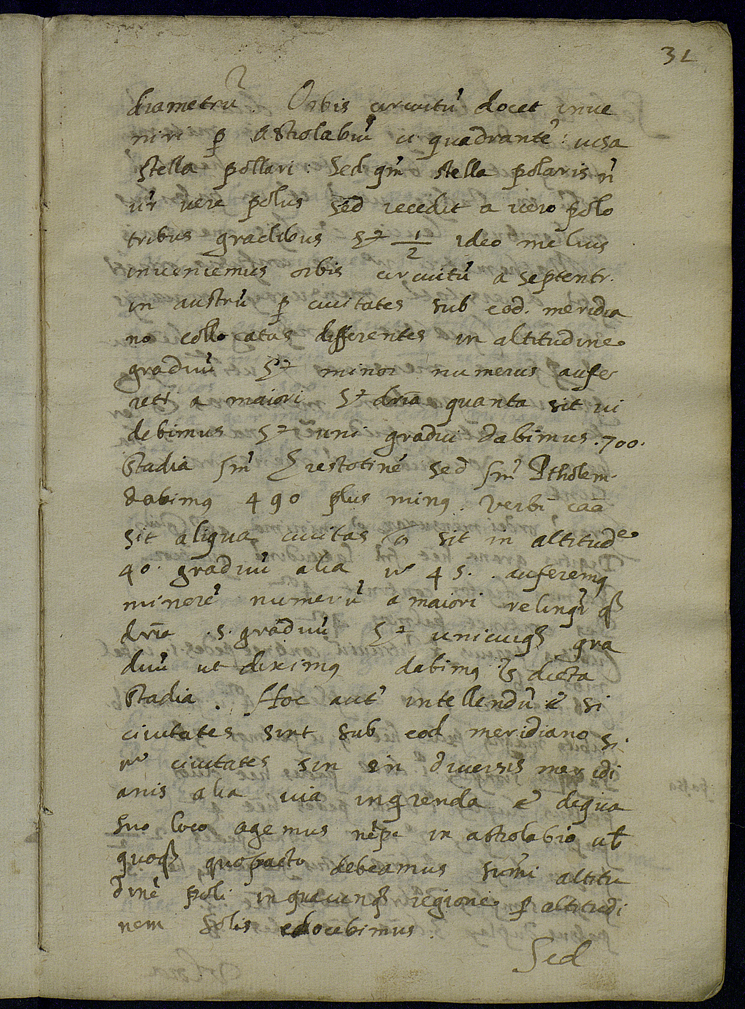 31
diametrū. Orbis circuitū docet inve
nire ꝑ Astrolabiū et quadrantē: visa
stella pollari: Sed qm̄ stella polaris ñ
ur̄ vere polus sed recedit a vero polo
tribus gradibus 52 1/2 ideo melius
inveniemus orbis circuitū a septentr.
in austrū ꝑ civitates sub eod. meridia
no collocatas differentes in altitudine
graduū minor numerus aufer
retr̄ a maiori dr̄ia quanta sit vi
debimus uni gradui dabimus .700.
Stadia sm̄ Erestotinē sed sm̄ Ptholem.
dabimq 490 plus minq. Verbi cāā
sit aliqua civitas sit in altitude
40. graduū alia v° 45. auferemq
minorē numerū a maiori relinqr̄
dr̄ia .5. graduū unicuiqꝫ gra
duū ut diximq dabimq dicta
Stadia. Hoc aut̄ intellendū ē si
civitates sint sub eod meridiano si
v° civitates sin in diversis meridi
anis alia via ingrenda ē de qua
suo loco agemus nēpe in astrolabio ut
quoqꝫ quo pacto debeamus sumi altitu
dinē poli in quacunqꝫ regione ꝑ altitudi
nem Solis edocebimus.
Sed